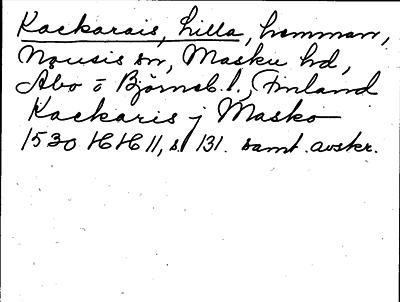 Kackarais, Lilla, hemman,
Nousis sn, Masku hd,
Åbo o Björneb. l., Finland
Kackaris j Masko
1530 HH 11, s. 131. samt. avskr.